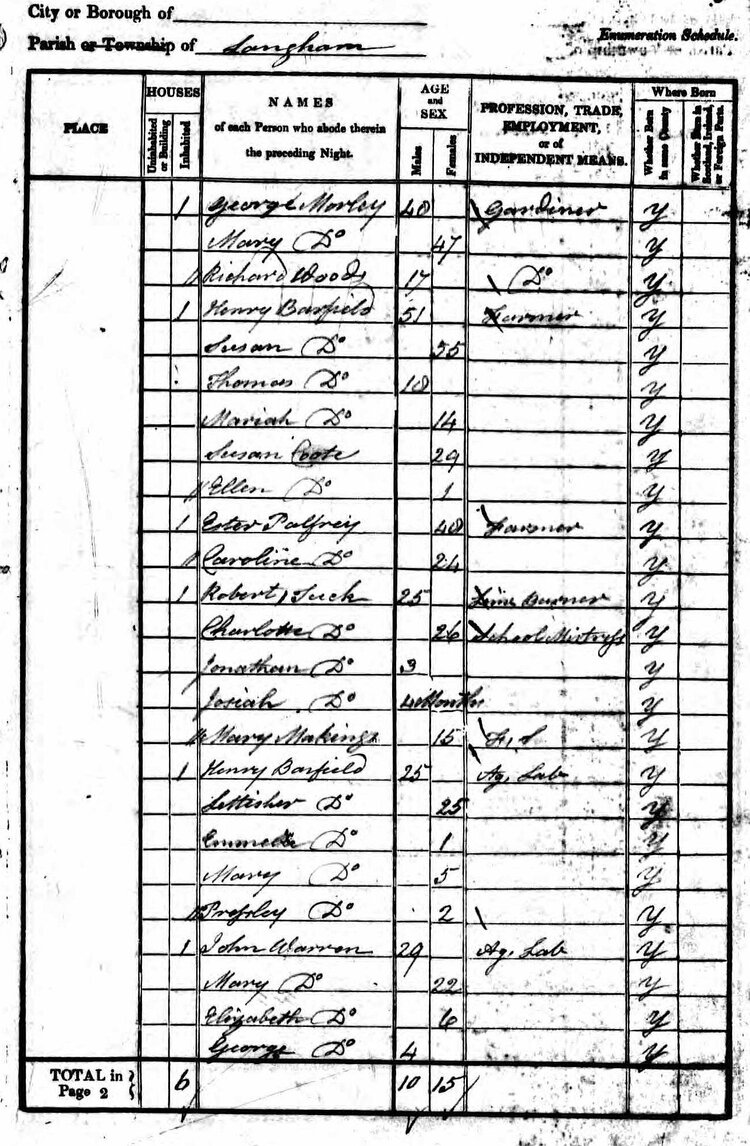 City or Borough of
Parish or Township of Langham
Enumeration Schedule.
PLACE
HOUSES
Uninhabited or Building
Inhabited
NAMES
of each Person who abode therein
the preceding Night.
AGE
and
SEX
Males
Females
PROFESSION, TRADE,
EMPLOYMENT,
or of
INDEPENDENT MEANS.
Where Born
Whether Born in same County
Whether Born in Scotland, Ireland, or Foreign Parts.
1 George Morley 40 Gardiner y
Mary Do 47 y
Richard Woods 17 Do y
1 Henry Barfield 51 Farmer y
Susan Do 55 y
Thomas Do 18 y
Mariah Do 14 y
Susan Coote 29 y
Ellen Do 1 y
1 Ester Palfrey 48 Farmer y
Caroline Do 24 y
1 Robert Suck 25 Lime Burner y
Charlotte Do 26 School Mistress y
Jonathan Do 3 y
Josiah Do 4 Months y
Mary Makings 15 F. S y
1 Henry Barfield 25 Ag. Lab y
Lettisher Do 25 y
Do 1 y
Mary Do 5 y
Pressley Do 2 y
1 John Warren 29 Ag. Lab y
Mary Do 22 y
Elizabeth Do 6 y
George Do 4 y
TOTAL in Page 2 6 10 15